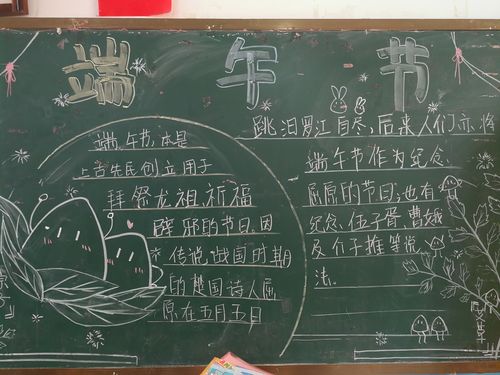 端午节
端午节,本是
上古先民创立用于
拜祭龙祖、祈福
辟邪的节日,因
传说战国时期
的楚国诗人屈
原在五月五日
跳汨罗江自尽,后来人们亦将
端午节作为纪念
屈原的节日;也有
纪念伍子胥、曹娥
及介子推等说
法.